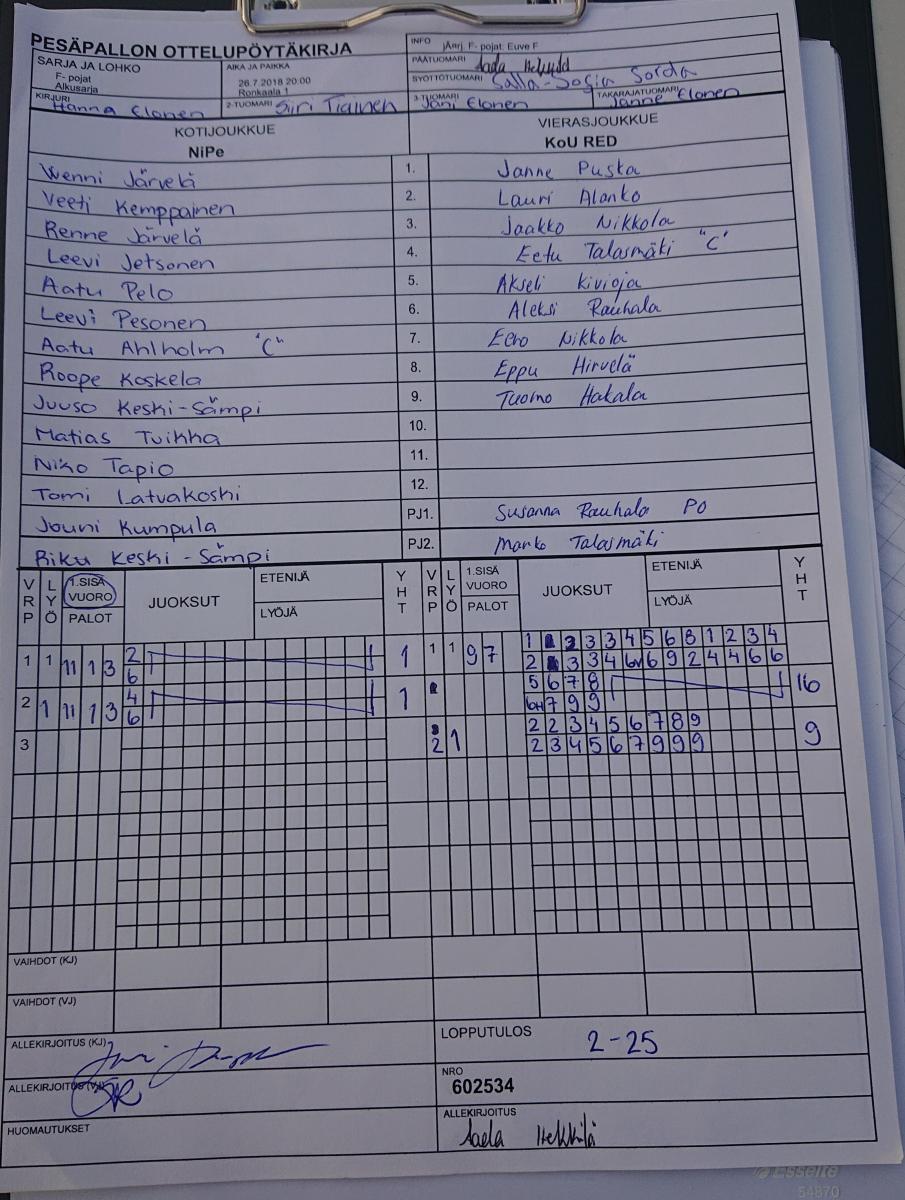 PESÄPALLON OTTELUPÖYTÄKIRJA
INFO jÄrj. F- pojat Euve F
SARJA JA LOHKO
F- pojat
Alkusarja
AIKA JA PAIKKA
26.7.2018 20:00
Ronkaala 1
PÄÄTUOMARI
SYÖTTÖTUOMARI Salla-Sofia Sorda
KIRJURI Hanna Elonen
2-TUOMARI Siri Tiainen
3-TUOMARI Jani Elonen
TAKARAJATUOMARI Janne Elonen
KOTIJOUKKUE
NiPe
VIERASJOUKKUE
KoU RED
Wenni Järvelä 1. Janne Puska
Veeti Kemppainen 2. Lauri Alanko
Renne Järvelä 3. Jaakko Nikkola
Leevi Jetsonen 4. Eetu Talasmäki "C"
Aatu Pelo 5. Akseli Kivioja
Leevi Pesonen 6. Aleksi Rauhala
Aatu Ahlholm "C" 7. Eero Nikkola
Roope Koskela 8. Eppu Hirvelä
Juuso Keski-Sämpi 9. Tuomo Hakala
Matias Tuikka 10.
Niko Tapio 11.
Tomi Latvakoski 12.
Jouni Kumpula PJ1. Susanna Rauhala PO
Riku Keski-Sämpi PJ2. Marko Talasmäki
VRP LYÖ 1.SISÄ VUORO PALOT JUOKSUT ETENIJÄ LYÖJÄ YHT VRP LYÖ 1.SISÄ VUORO PALOT JUOKSUT ETENIJÄ LYÖJÄ YHT
1 1 11 1 3 2 1 1 1 9 7 1 2 3 3 4 5 6 8 1 2 3 4
6 2 3 3 4 6 9 2 4 4 6 6
2 1 11 1 3 4 1 5 6 7 8 16
6 7 9 9
3 2 1 2 2 3 4 5 6 7 8 9 9
2 3 4 5 6 7 9 9 9
VAIHDOT (KJ)
VAIHDOT (VJ)
ALLEKIRJOITUS (KJ)
LOPPUTULOS 2-25
ALLEKIRJOITUS (VJ)
NRO
602534
HUOMAUTUKSET
ALLEKIRJOITUS
Saela Heikkilä
Esselte
54870